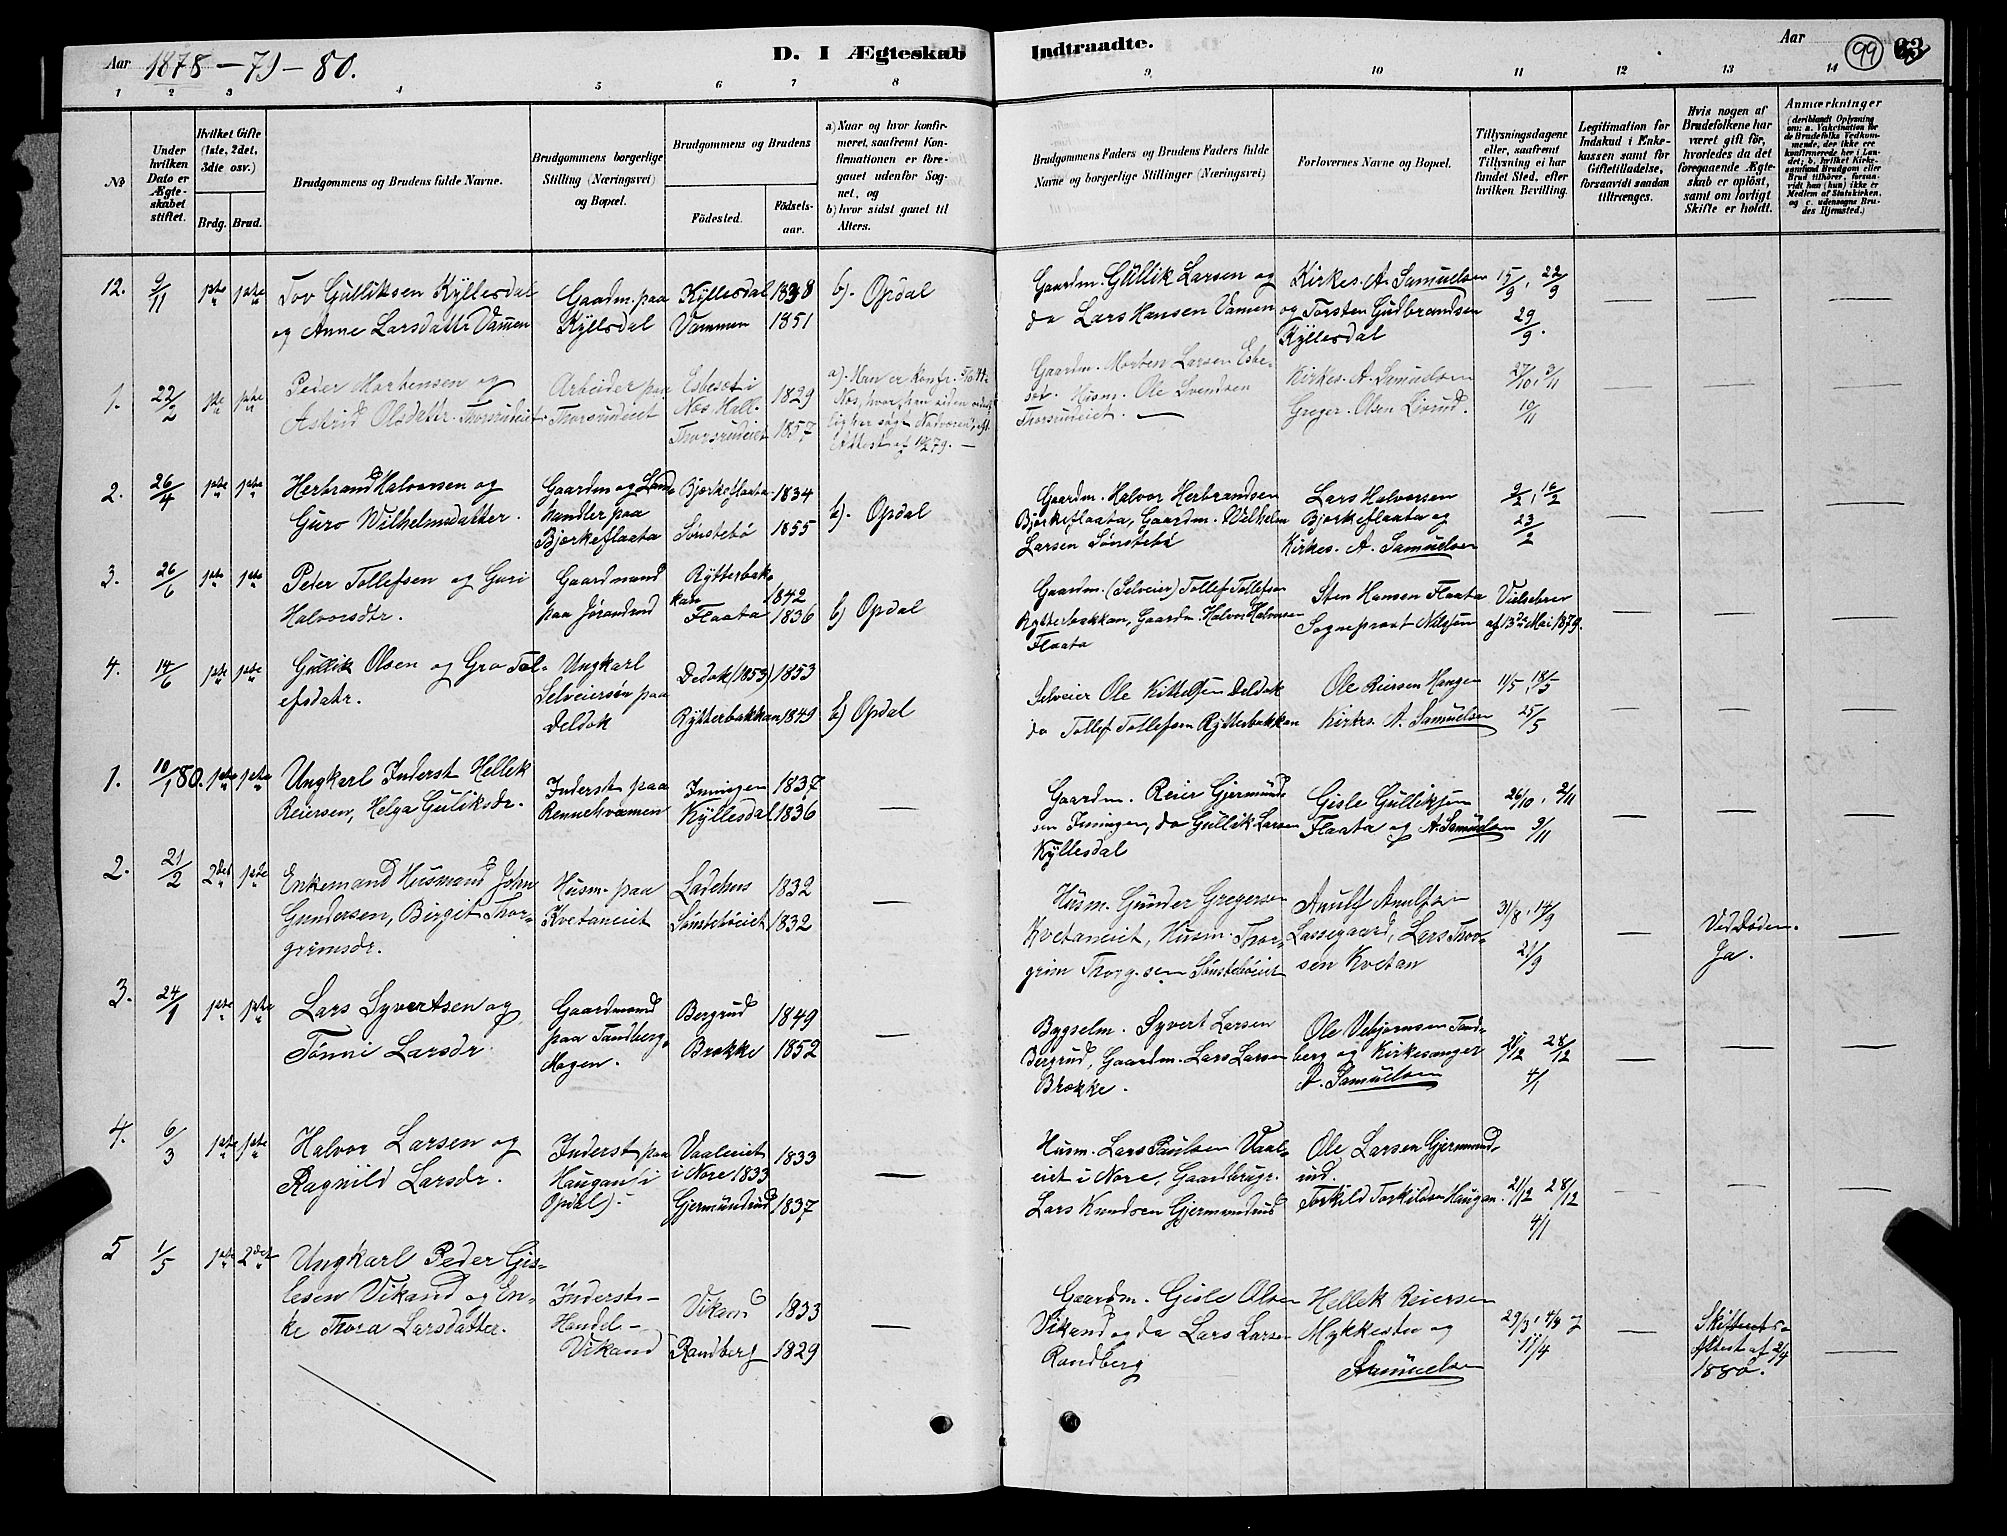 Aar 1878-79-80.
D. I Ægteskab
Indtraadte.
Aar
99
93
1 2 3 4 5 6 7 8
9 10 11 12 13 14
№
Under hvilken Dato er Ægteskabet stiftet.
Hvilket Gifte (1ste, 2det, 3die osv.)
Brdg. Brud.
Brudgommens og Brudens fulde Navne.
Brudgommens borgerlige Stilling (Næringsvei) og Bopæl.
Brudgommens og Brudens
Födested.
Födselsaar.
a) Naar og hvor konfirmeret, saafremt Konfirmationen er foregaaet udenför Sognet, og
b) hvor sidst gaaet til Alters.
Brudgommens Faders og Brudens Faders fulde Navne og borgerlige Stillinger (Næringsvei)
Forlovernes Navne og Bopæl.
Tillysningsdagene eller, saafremt Tillysning ei har fundet Sted, efter hvilken Bevilling.
Legitimation for Indskud i Enkekassen samt for Giftetilladelse, forsaavidt saadan tiltrænges.
Hvis nogen af Brudefolkene har været gift för, hvorledes da det foregaaende Ægteskab er oplöst, samt om lovligt Skifte er holdt.
Anmærkninger
(deriblandt Oplysning om: a. Vakcination for de Brudefolks Vedkommende, der ikke ere konfirmerede her i Landet; b. hvilket Kirkesamfund Brudgom eller Brud tilhörer, forsaavidt han (hun) ikke er Medlem af Statskirken, og c. udensogns Brudes Hjemsted.)
12. 9/11 1ste 1ste Tov Gulliksen Kyllesdal Gaardm. paa Kyllesdal 1838 b). Opdal
og Anne Larsdattr Vammen Kyllsdal Vammen 1851
Gaardm. Gullik Larsen og Kirkes. A. Samuelsen 15/9, 22/9
do Lars Hansen Vamen og Torsten Gudbrandsen 29/9.
Kyllesdal
1. 22/2 1ste 1ste Peder Mortensen og Arbeider paa Esbeset i 1829 a). Han er konfr.
Astrid Olsdattr. Thorsrudeiet Thorsrudeiet Næs Hall. Næs, hvor han siden
Thorsrudeiet 1857 lig har søgt Nadveren,
Attest af 19/2 79.
Gaardm. Morten Larsen Esbe- Kirkes. A. Samuelsen 27/10, 3/11
set. Husm. Ole Svendsen Greger Olsen Livrud. 10/11
Thorsrudeiet.
2. 26/4 1ste 1ste Herbrand Halvorsen og Gaardm og Land- Bjørkeflaata 1834 b). Opdal
Guro Wilhelmsdatter. handler paa Sønstebö 1855
Bjørkeflaata
Gaardm. Halvor Herbrandsen Lars Halvorsen 9/2, 16/2
Bjørkeflaata, Gaardm. Wilhelm Bjørkeflaata og 23/2
Larsen Sønstebö Kirkes. A. Samuelsen
3. 26/6 1ste 1ste Peder Tollefsen og Guri Gaardmand Rytterbak- 1842 b) Opdal
Halvorsdtr. paa Jørandrud kan
Flaata 1836
Gaardm. (Selveier) Tollef Tollefsen Sten Hansen Flaata Vielsebrev
Rytterbakkan, Gaardm. Halvor Halvorsen Sogneprest Nilssen af 13de Mai 1879.
Flaata
4. 14/6 1ste 1ste Gullik Olsen og Gro Tol- Ungkarl Dedok (1853) 1853 b) Opdal
efsdatr. Selveiersøn paa Rytterbakkan 1849
Deldok
Selveier Ole Kittelsen Deldok Ole Reiersen Haugen 11/5, 18/5
do Tollef Tollefsen Rytterbakkan Kirkes. A. Samuelsen 25/5
1. 10/1 80. 1ste 1ste Ungkarl Inderst Hellek Inderst paa Inningen 1837
Reiersen, Helga Guliksdr. Rennehvammen Kyllesdal 1836
Gaardm. Reier Gjermund- Gisle Gulliksen 26/10, 2/11
sen Inningen, do Gullik Larsen Flaata og A. Samuelsen 9/11
Kyllesdal
2. 21/2 2det 1ste Enkemand Husmand John Husm. paa Ladehus 1832
Gundersen, Birgit Thor- Kvetaneiet Sönstebøeiet 1832
grimsdr.
Husm. Gunder Gregersen Anulf Anulfsen 31/8, 14/9
Kvetaneiet, Husm. Thor- Lassegaard, Lars Thor- 21/9
grim Thorg.sen Sönstebøeiet sen Kvetan
Ved Døden.
Ja.
3. 24/1 1ste 1ste Lars Syvertsen og Gaardmand Bergrud 1849
Tönni Larsdr. paa Tandberg- Brøkke 1852
Hagen.
Bygselm. Syvert Larsen Ole Vebjørnsen Tand-
Bergrud, Gaardm. Lars Larsen berg og Kirkesanger 21/12 28/12
Brøkke. A. Samuelsen 4/1
4. 6/3 1ste 1ste Halvor Larsen og Inderst paa Vaaleeiet 1833
Ragnild Larsdr. Haugan (i i Nore 1833
Opdal). Gjermundrud 1837
Husm. Lars Paulsen Vaal- Ole Larsen Gjermund-
eiet i Nore, Gaardbrugr. rud.
Lars Knudsen Gjermundrud Torkild Torkildsen Haugan. 21/12 28/12
4/1
5 1/5 1ste 2det Ungkarl Peder Gis-
lesen Vikand og En- Inderst- Vikand 1833
ke Thora Larsdatter. Handel-
Vikand Randberg 1829
Gaardm. Gisle Olsen Hellek Reiersen
Vikand og do Lars Larsen Mykkestu og 29/3, 4/4
Randberg Samuelsen 11/4
Skifterets-
Attest af 2/4
1880.